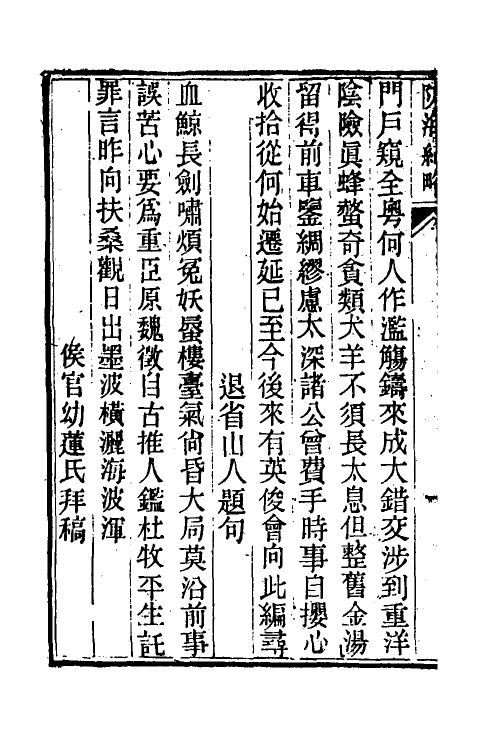 防海紀略
門戶窺全粵何人作濫觴鑄來成大錯交涉到重洋
陰險眞蜂螫奇貪類犬羊不須長太息但整舊金湯
留得前車鑒綢繆慮太深諸公曾費手時事自攖心
收拾從何始遷延已至今後來有英俊會向此編尋
退省山人題句
血鯨長劍嘯煩冤妖蜃樓臺氣尙昏大局莫沿前事
誤苦心要爲重臣原魏徵自古推人鑑杜牧平生託
罪言昨向扶桑觀日出墨波橫灑海波渾
侯官幼蓮氏拜稿